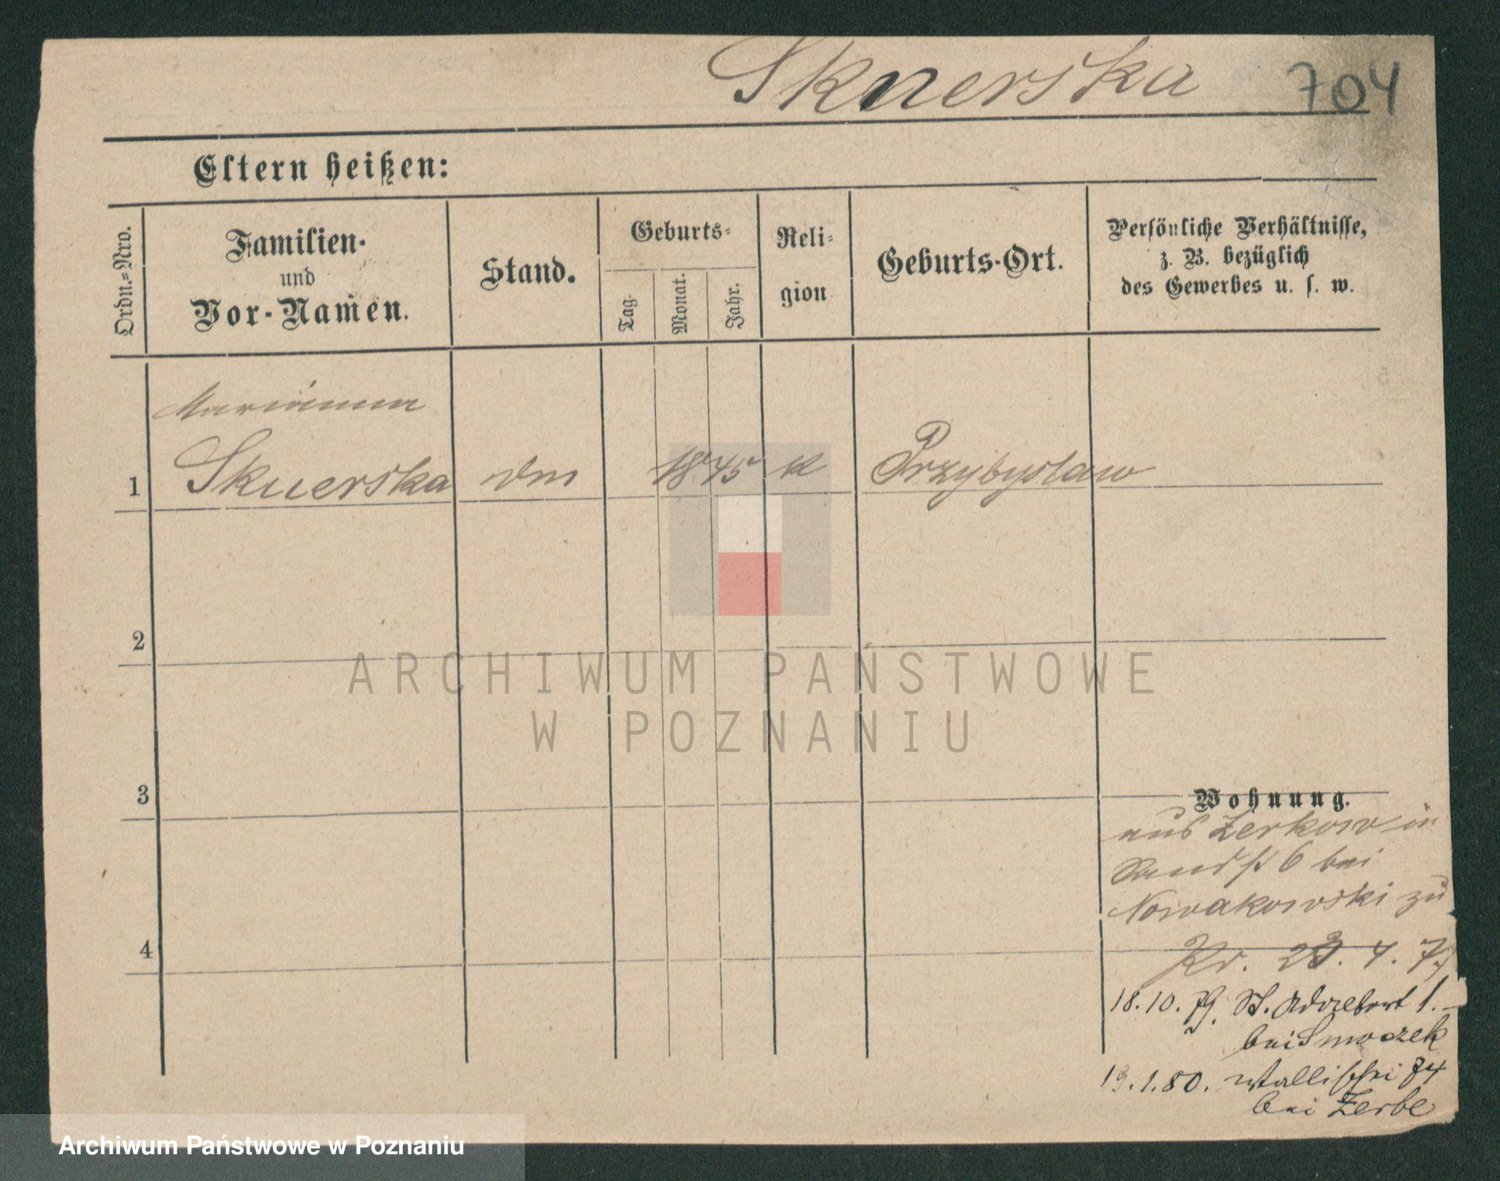 Skuerska 704
Eltern heißen:
Ordn.-Nro.
Familien-
und
Vor-Namen.
Stand.
Geburts-
Tag.
Monat.
Jahr.
Reli-
gion
Geburts-Ort.
Persönliche Verhältnisse,
z. B. bezüglich
des Gewerbes u. s. w.
Marianna
1 Skuerska 1845 k Przybyslaw
2
ARCHIWUM PAŃSTWOWE
W POZNANIU
3
Wohnung.
aus Zerkow in
6 bei
Nowakowski zu
4
Kr. 23. 4. 79
18.10.79. St. Adalbert 1.
bei Smoczek
13.1.80. Wallischei 74
bei Zerbe
Archiwum Państwowe w Poznaniu